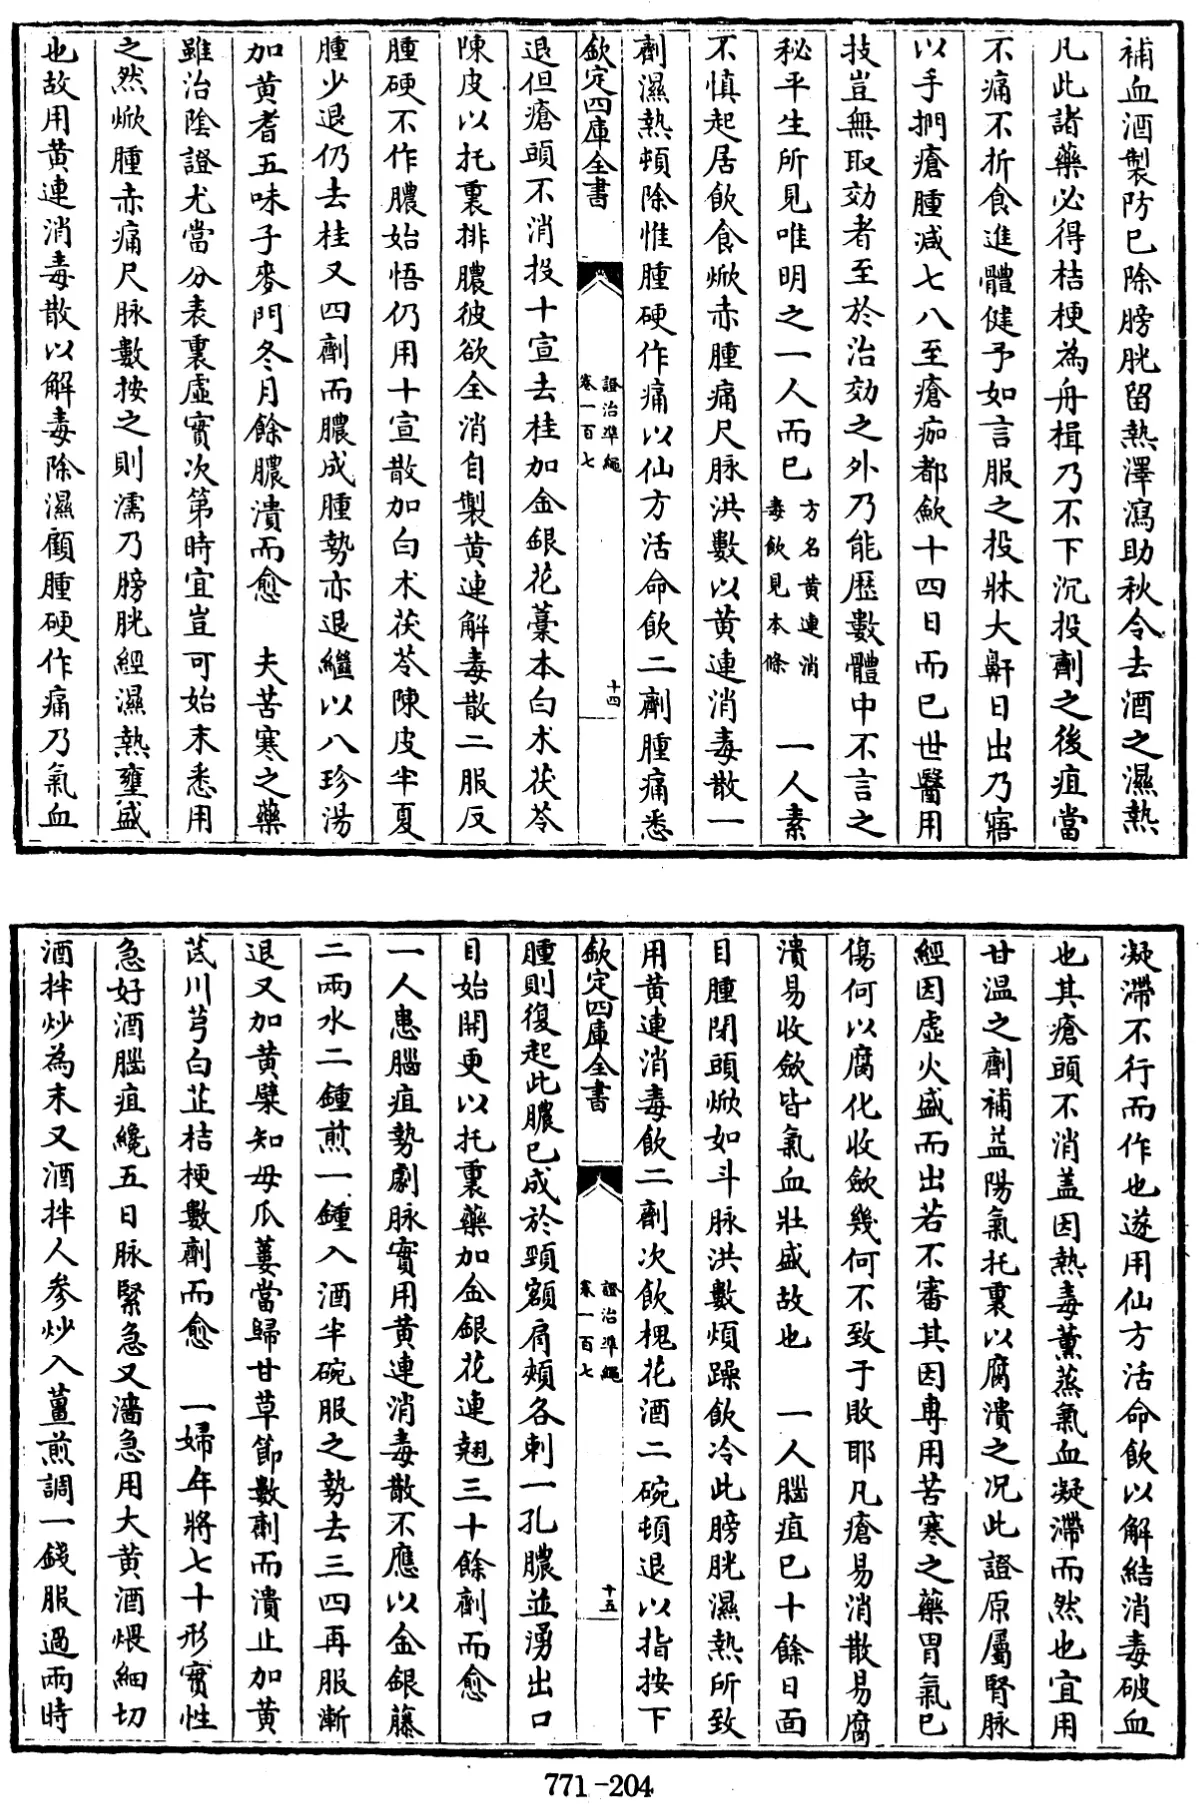 補血酒製防已除膀胱留熱澤瀉助秋令去酒之濕熱
凡此諸藥必得桔梗為舟楫乃不下沉投劑之後疽當
不痛不折食進體健予如言服之投牀大鼾日出乃寤
以手捫瘡腫減七八至瘡痂都歛十四日而已世醫用
技豈無取効者至於治効之外乃能歷數體中不言之
秘平生所見唯明之一人而已方名黄連消毒飲見本條　一人素
不慎起居飲食焮赤腫痛尺脉洪數以黄連消毒散一
劑濕熱頓除惟腫硬作痛以仙方活命飲二劑腫痛悉
欽定四庫全書　證治準繩卷一百七　十四
退但瘡頭不消投十宣去桂加金銀花藁本白术茯苓
陳皮以托裏排膿彼欲全消自製黄連解毒散二服反
腫硬不作膿始悟仍用十宣散加白术茯苓陳皮半夏
腫少退仍去桂又四劑而膿成腫勢亦退繼以八珍湯
加黄耆五味子麥門冬月餘膿潰而愈　夫苦寒之藥
雖治陰證尤當分表裏虛實次第時宜豈可始末悉用
之然焮腫赤痛尺脉數按之則濡乃膀胱經濕熱壅盛
也故用黄連消毒散以解毒除濕顧腫硬作痛乃氣血
凝滯不行而作也遂用仙方活命飲以解結消毒破血
也其瘡頭不消盖因熱毒薰蒸氣血凝滯而然也宜用
甘温之劑補益陽氣托裏以腐潰之况此證原屬腎脉
經因虛火盛而出若不審其因専用苦寒之藥胃氣已
傷何以腐化收歛幾何不致于敗耶凡瘡易消散易腐
潰易收歛皆氣血壯盛故也　一人腦疽已十餘日面
目腫閉頭焮如斗脉洪數煩躁飲冷此膀胱濕熱所致
用黄連消毒飲二劑次飲槐花酒二碗頓退以指按下
欽定四庫全書　證治準繩卷一百七　十五
腫則復起此膿已成於頸額肩頰各刺一孔膿並湧出口
目始開更以托裏藥加金銀花連翹三十餘劑而愈
一人患腦疽勢劇脉實用黄連消毒散不應以金銀藤
二兩水二鍾煎一鍾入酒半碗服之勢去三四再服漸
退又加黄檗知母瓜蔞當歸甘草節數劑而潰止加黄
芪川芎白芷桔梗數劑而愈　一婦年將七十形實性
急好酒腦疽纔五日脉緊急又濇急用大黄酒煨細切
酒拌炒為末又酒拌人參炒入薑煎調一錢服過兩時
771-204